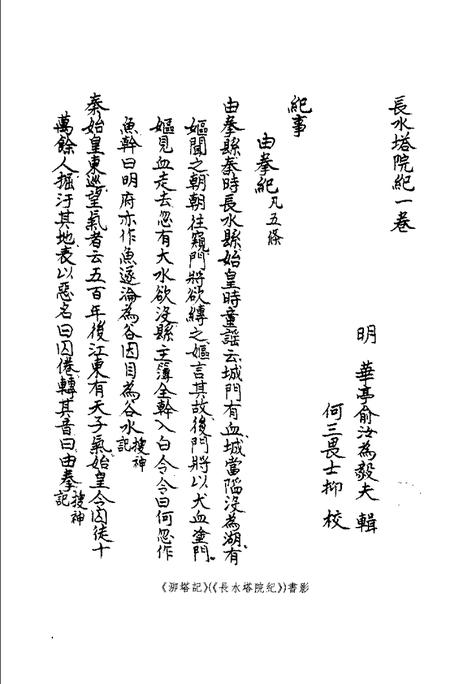 長水塔院紀一卷
明 華亭俞汝為毅夫 輯
何三畏士抑 校
紀事
由拳紀凡五條
由拳縣秦時長水縣始皇時童謡云城門有血城當陷沒為湖有
嫗聞之朝朝往窺門將欲縛之嫗言其故後門將以犬血塗門
嫗見血走去忽有大水欲沒縣主簿全幹入白令令曰何忽作
魚幹曰明府亦作魚遂淪為谷因目為谷水搜神記
秦始皇東巡望氣者云五百年後江東有天子氣始皇令囚徒十
萬餘人掘汙其地表以惡名曰囚倦轉其音曰由拳搜神記
《泖塔記》(《長水塔院紀》)書影